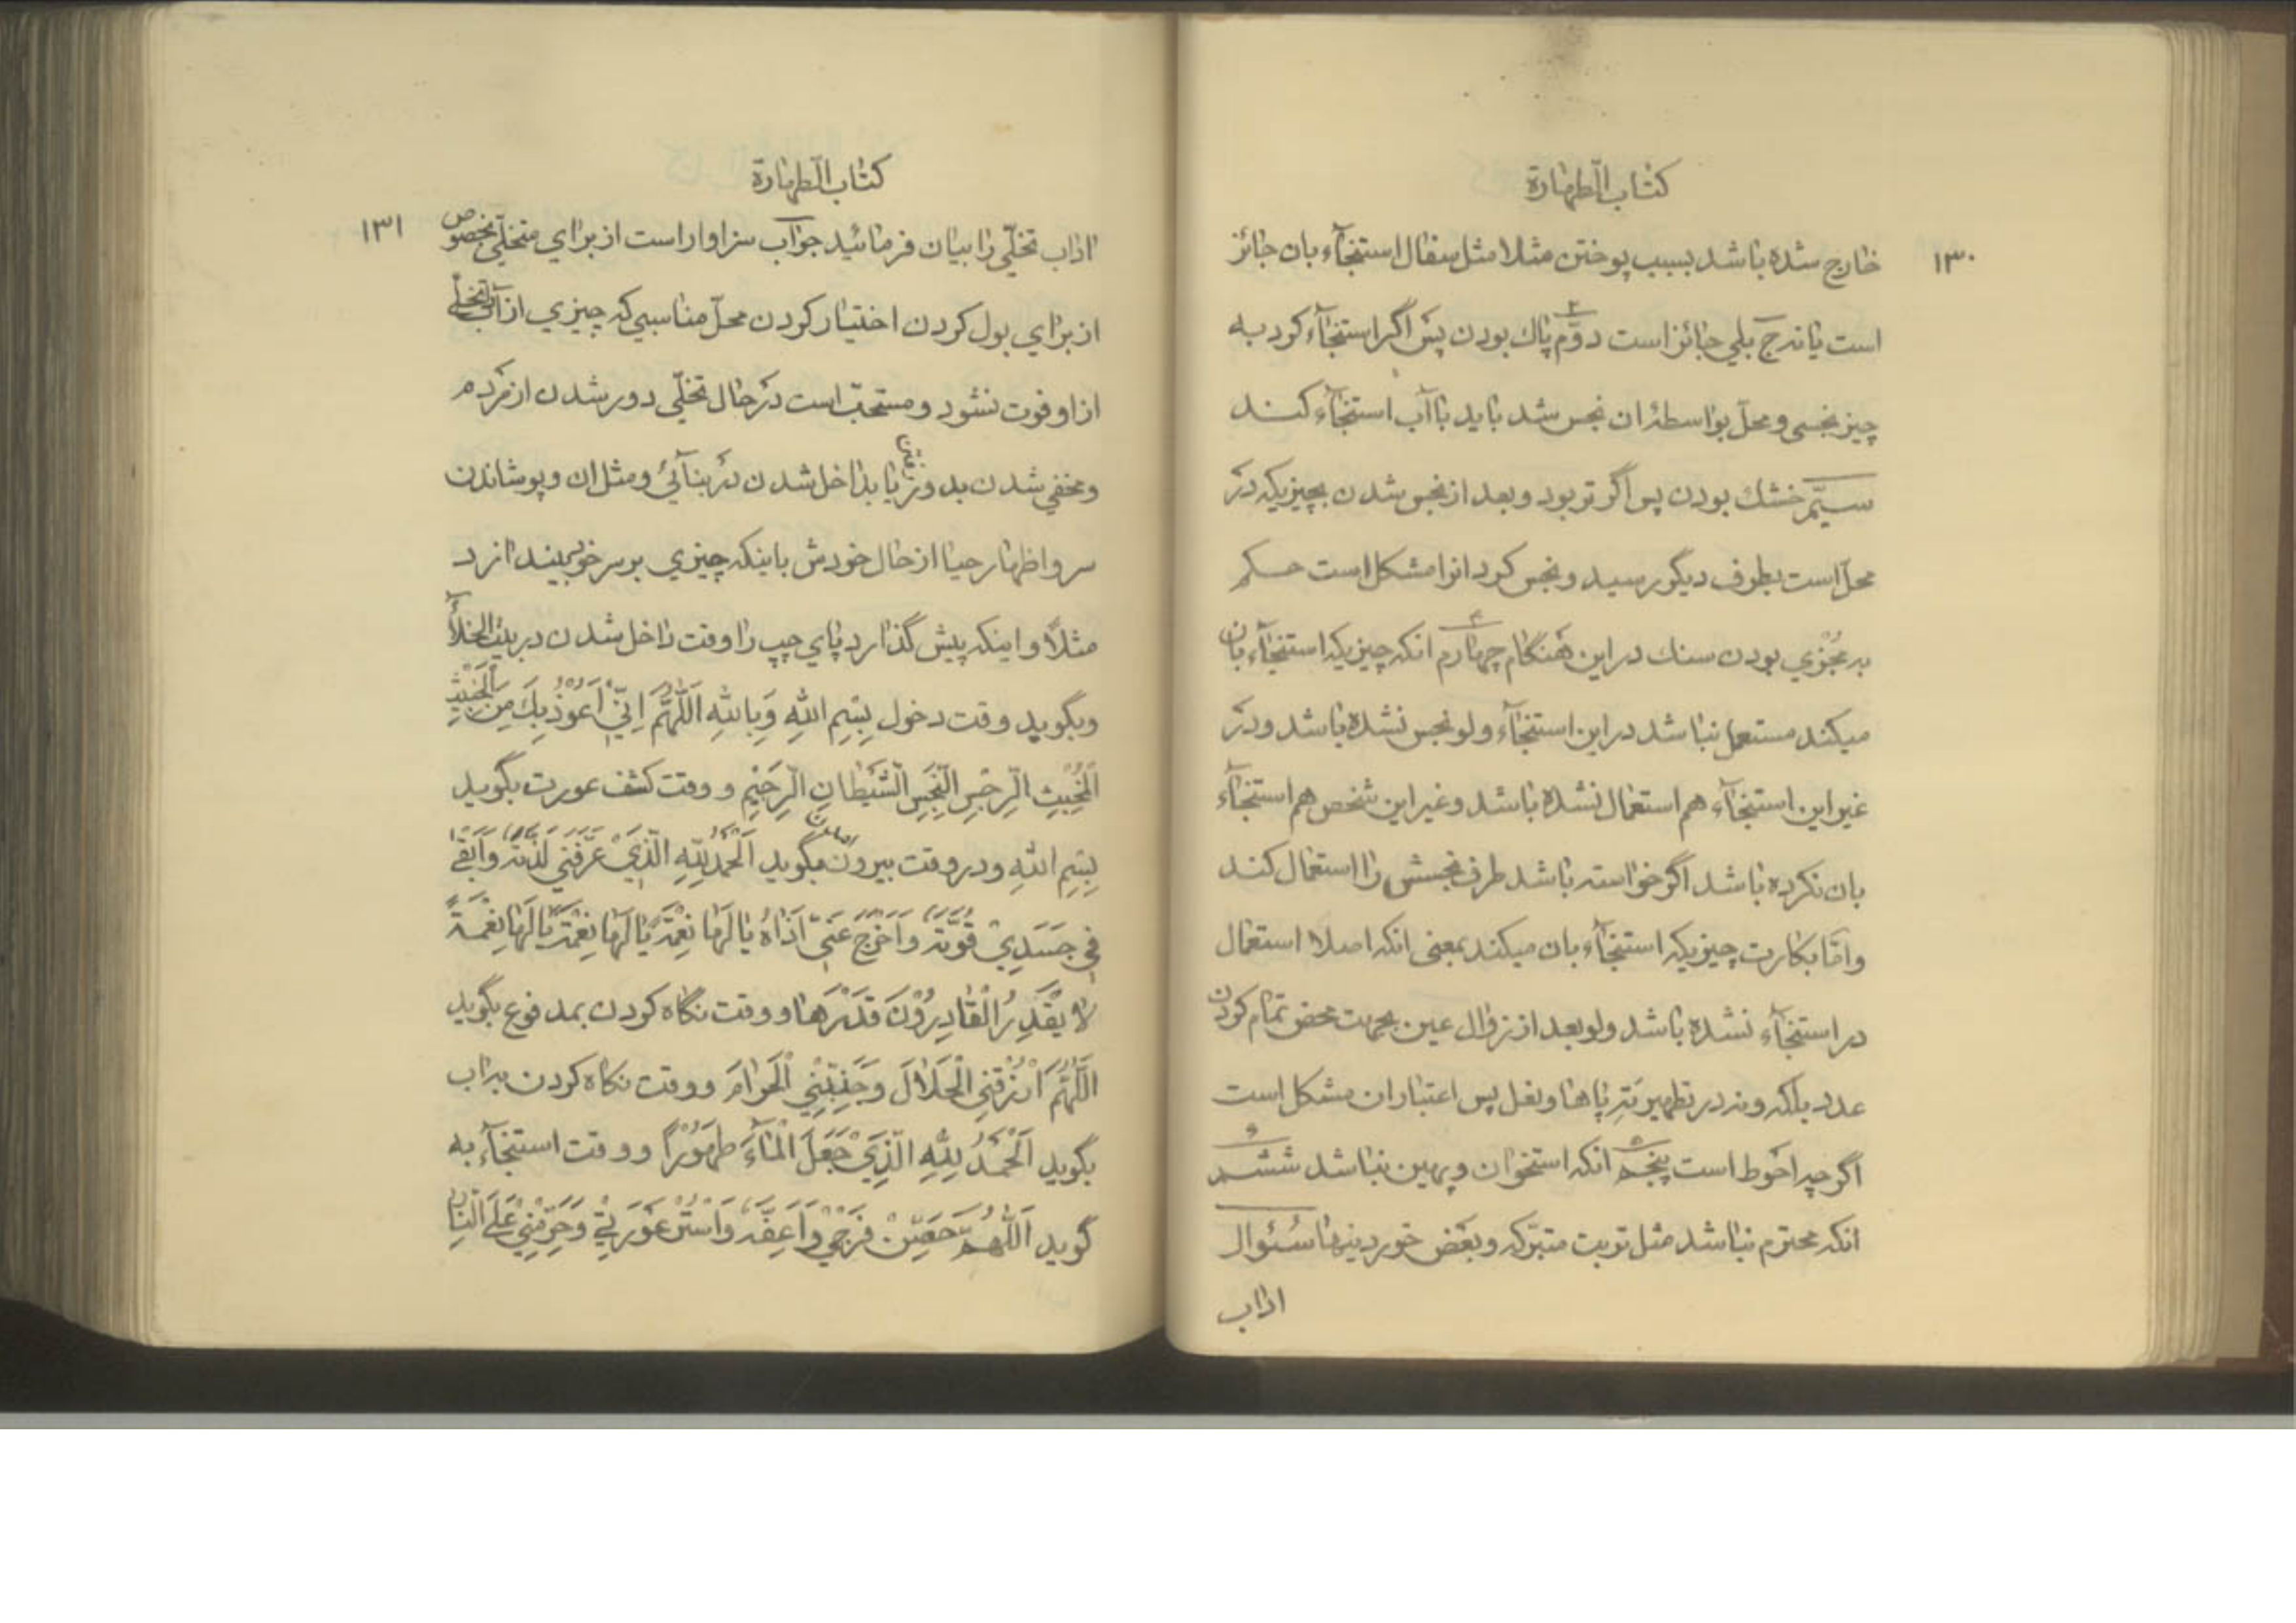 كتاب الطهارة
۱۳۰
خارج شده باشد بسبب پوختن مثلا مثل سفال استنجآء بان جائز
است يا نه ج بلي جائز است دوّم پاك بودن پس اگر استنجآء كرد به
چيز نجسي و محلّ بواسطهٔ ان نجس شد بايد با آب استنجآء كند
سيّم خشك بودن پس اگر تر بود و بعد از نجس شدن بچيزيكه در
محلّ است بطرف ديگر رسيد و نجس كرد انرا مشكل است حكم
به مُجْزي بودن سنك در اين هنگام چهارم انكه چيزيكه استنجآء بان
ميكند مستعمل نباشد در اين استنجآء ولو نجس نشده باشد و در
غير اين استنجآء هم استعمال نشده باشد و غير اين شخص هم استنجآء
بان نكرده باشد اگر خواسته باشد طرف نجسش را استعمال كند
و امّا بكارت چيزيكه استنجآء بان ميكند بمعني انكه اصلا استعمال
در استنجآء نشده باشد ولو بعد از زوال عين بجهت محض تمام كردن
عدد بلكه و نه در تطهير ته پاها و نعل پس اعتبار ان مشكل است
اگر چه احوط است پنجم انكه استخوان و پهين نباشد ششم
انكه محترم نباشد مثل تربت متبرّكه و بعض خوردينها سئوال
اداب
كتاب الطهارة
۱۳۱
اداب تخلّي را بيان فرمائيد جواب سزاوار است از براي متخلّي مخصوص
از براي بول كردن اختيار كردن محلّ مناسبي كه چيزي از آداب تخلّي
از او فوت نشود و مستحبّ است در حال تخلّي دور شدن از مردم
و مخفي شدن بدور رفتن يا بداخل شدن در بنآئي و مثل ان و پوشاندن
سر و اظهار حيا از حال خودش باينكه چيزي بر سر خود ببيندازد
مثلاً و اينكه پيش گذارد پاي چپ را وقت داخل شدن در بيت الخلآء
و بگويد وقت دخول بِسْمِ اللهِ وَبِاللهِ اَللّهُمَّ اِنّي اَعُوْذُ بِكَ مِنَ الْخَبيْثِ
الْمُخْبِثِ الرِّجْسِ النَّجِسِ الشَّيْطانِ الرَّجيْمِ و وقت كشف عورت بگويد
بِسْمِ اللهِ و در وقت بيرون امدن بگويد اَلْحَمْدُ لِلّهِ الَّذيْ عَرَّفَني لَذَّتَهُ وَاَبْقى
في جَسَديْ قُوَّتَهُ وَاَخْرَجَ عَنّيْ اَذاهُ يا لَها نِعْمَةً يا لَها نِعْمَةً يا لَها نِعْمَةً
لا يَقْدِرُ الْقادِرُوْنَ قَدْرَها و وقت نگاه كردن بمدفوع بگويد
اَللّهُمَّ ارْزُقْنِي الْحَلالَ وَجَنِّبْنِي الْحَرامَ و وقت نگاه كردن به اب
بگويد اَلْحَمْدُ لِلّهِ الَّذيْ جَعَلَ الْمآءَ طَهُوْرًا و وقت استنجآء به
گويد اَللّهُمَّ حَصِّنْ فَرْجيْ وَاَعِفَّهُ وَاسْتُرْ عَوْرَتيْ وَحَرِّمْنيْ عَلَى النّارِ